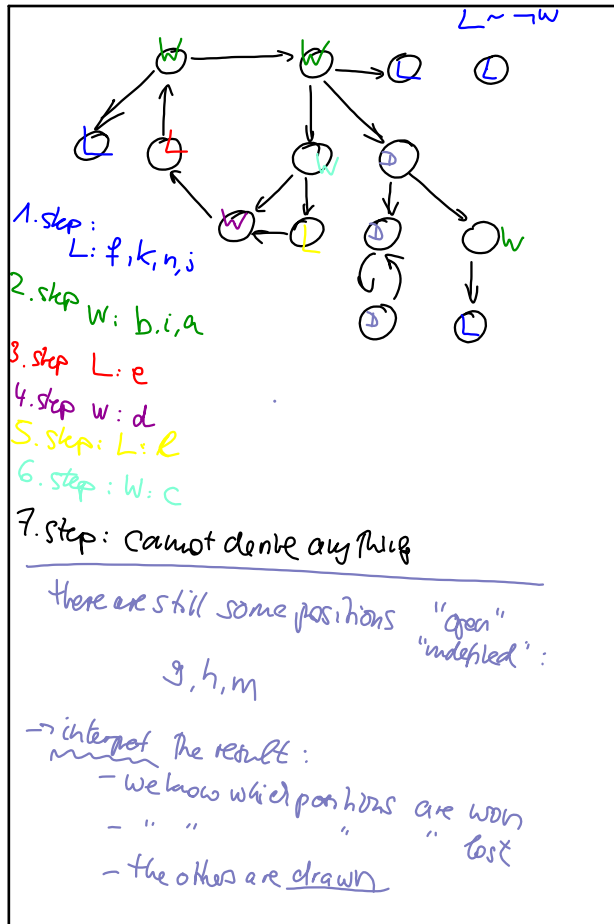 L ~ ¬W
W W L L
L L W D
W L D W
D L
1. step :
L: f, k, n, j
2. step W: b, i, a
3. step L: e
4. step W: d
5. step: L: l
6. step: W: c
7. step: cannot derive anything
there are still some positions "open"
"undefined" :
g, h, m
→ interpret the result :
- we know which positions are won
- " " " " lost
- the others are drawn